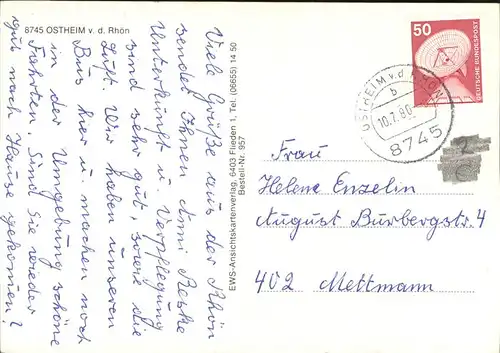 8745 OSTHEIM v. d. Rhön
Viele Grüße aus der Rhön
sendet Ihnen Anni Reske
Unterkunft u Verpflegung
sind sehr gut, sowie die
Luft. Wir haben unseren
Bus hier u. machen noch
in der Umgebung schöne
Fahrten. Sind Sie wieder
gut nach Hause gekommen?
EWS-Ansichtskartenverlag, 6403 Flieden 1, Tel. (06655) 14 50
Bestell-Nr. 957
50
DEUTSCHE BUNDESPOST
OSTHEIM v. d. RHÖN
b
10.7.80
8745
Frau
Helene Enzelin
August Burbergstr. 4
402 Mettmann